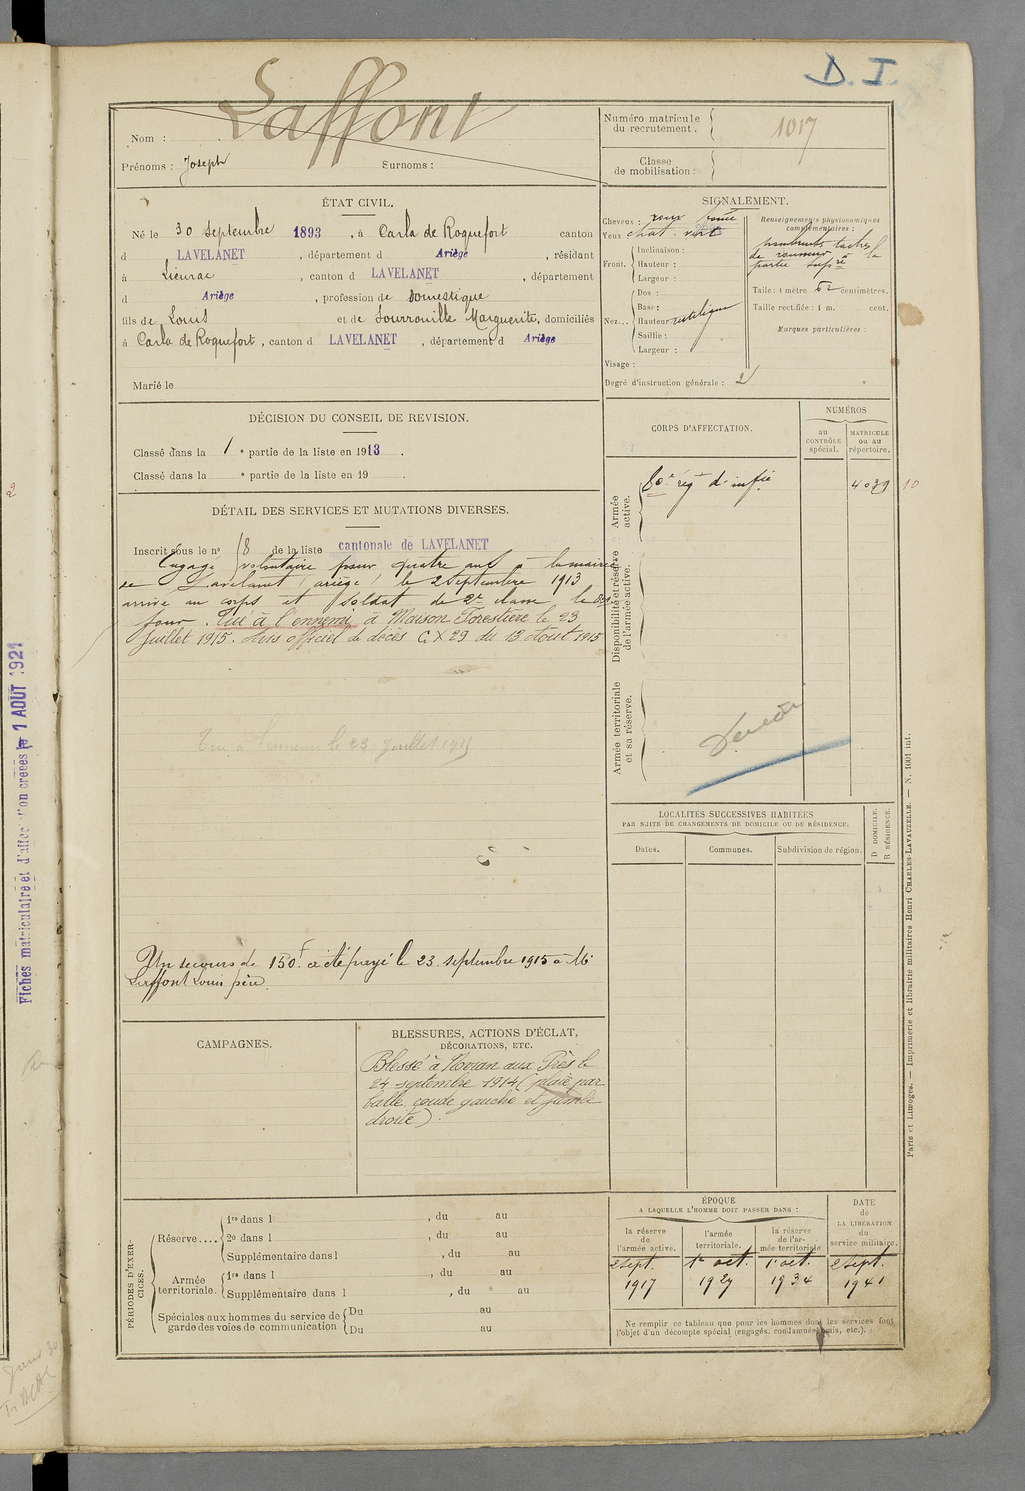 D. I.
Nom : Laffont
Prénoms : Joseph Surnoms :
Numéro matricule
du recrutement. 1017
Classe
de mobilisation :
ÉTAT CIVIL.
Né le 30 Septembre 1893 , à Carla de Roquefort canton
d LAVELANET , département d Ariège , résidant
à Lieurac , canton d LAVELANET , département
d Ariège , profession de domestique
fils de Louis et de Sourrouille Marguerite, domiciliés
à Carla de Roquefort , canton d LAVELANET , département d Ariège
Marié le
SIGNALEMENT.
Cheveux : roux foncé
Yeux chat. vert
Front. Inclinaison :
Hauteur :
Largeur :
Nez... Dos :
Base :
Hauteur rectiligne
Saillie :
Largeur :
Visage :
Degré d'instruction générale : 2
Renseignements physionomiques
complémentaires :
nombreuses taches
de rousseur à la
partie supre
Taille : 1 mètre 62 centimètres.
Taille rectifiée : 1 m. cent.
Marques particulières :
DÉCISION DU CONSEIL DE REVISION.
Classé dans la 1 e partie de la liste en 1913 .
Classé dans la e partie de la liste en 19 .
DÉTAIL DES SERVICES ET MUTATIONS DIVERSES.
Inscrit sous le no 18 de la liste cantonale de LAVELANET
Engagé volontaire pour quatre ans à la mairie
de Lavelanet (ariège) le 2 Septembre 1913
arrivé au corps et soldat de 2e classe le dit
jour. Tué à l'ennemi à Maison Forestière le 23
Juillet 1915. Avis officiel de décès C. X 29 du 13 Aout 1915
Tué à l'ennemi le 23 Juillet 1915
Un secours de 150f. a été payé le 23 septembre 1915 à Mr
Laffont Louis père.
CORPS D'AFFECTATION.
NUMÉROS
au
CONTRÔLE
spécial.
MATRICULE
ou au
répertoire.
Armée
active.
80e régt d'infie 4039 10
Disponibilité et réserve
de l'armée active.
Armée territoriale
et sa réserve.
LOCALITÉS SUCCESSIVES HABITÉES
PAR SUITE DE CHANGEMENTS DE DOMICILE OU DE RÉSIDENCE.
Dates. Communes. Subdivision de région.
D DOMICILE.
R RÉSIDENCE.
CAMPAGNES.
BLESSURES, ACTIONS D'ÉCLAT,
DÉCORATIONS, ETC.
Blessé à Rovran aux Près le
24 septembre 1914 (plaie par
balle coude gauche et jambe
droite)
PÉRIODES D'EXER-
CICES.
Réserve.... 1re dans l , du au
2e dans l , du au
Supplémentaire dans l , du au
Armée
territoriale. 1re dans l , du au
Supplémentaire dans l , du au
Spéciales aux hommes du service de
garde des voies de communication Du au
Du au
ÉPOQUE
A LAQUELLE L'HOMME DOIT PASSER DANS :
la réserve
de
l'armée active.
l'armée
territoriale.
la réserve
de l'ar-
mée territoriale
DATE
de
LA LIBÉRATION
du
service militaire.
2 sept. 1er oct. 1er oct. 2 sept.
1917 1927 1934 1941
Ne remplir ce tableau que pour les hommes dont les services font
l'objet d'un décompte spécial (engagés, condamnés, omis, etc.).
Paris et Limoges. — Imprimerie et librairie militaires Henri CHARLES-LAVAUZELLE. — N. 1001 int.
Fiches matriculaire et d'affectation créées le 1 AOUT 1921